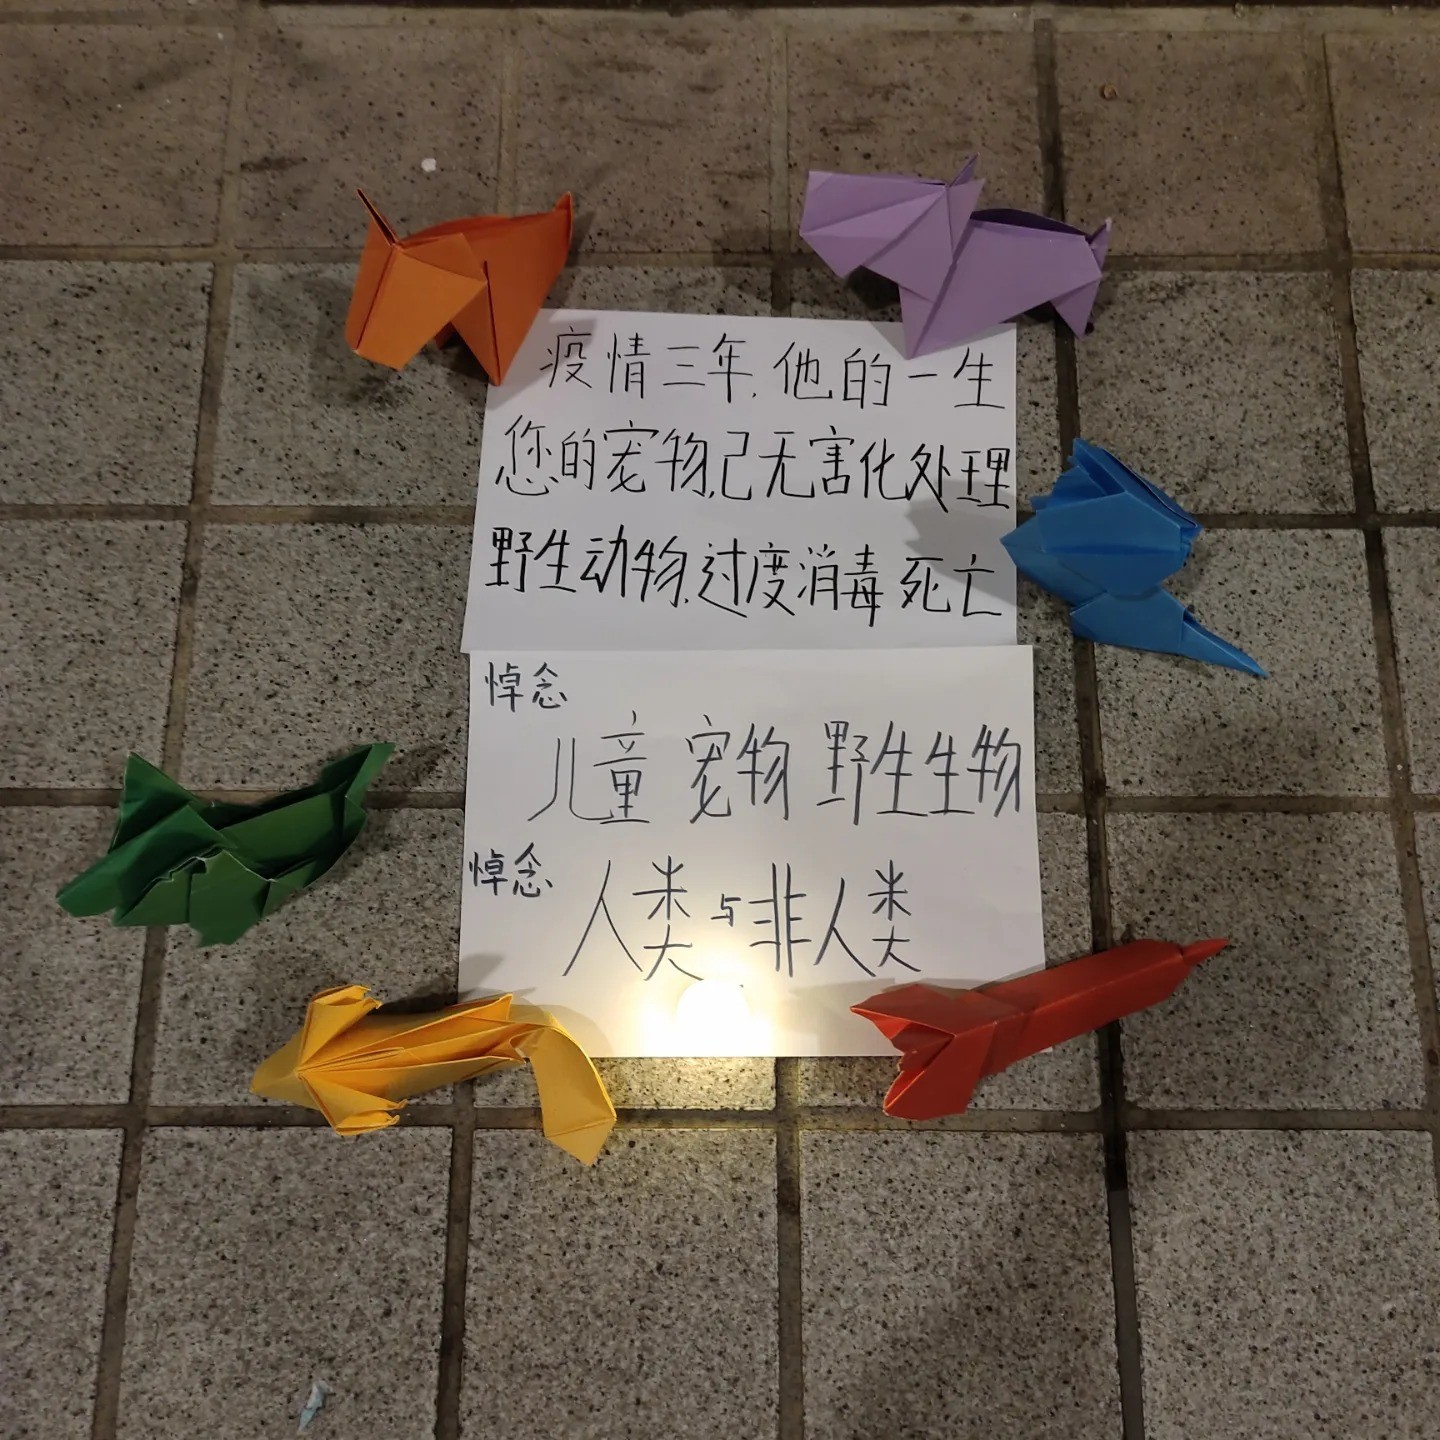 疫情三年,他的一生
您的宠物,已无害化处理
野生动物,过度消毒 死亡
悼念
儿童 宠物 野生生物
悼念 人类与非人类